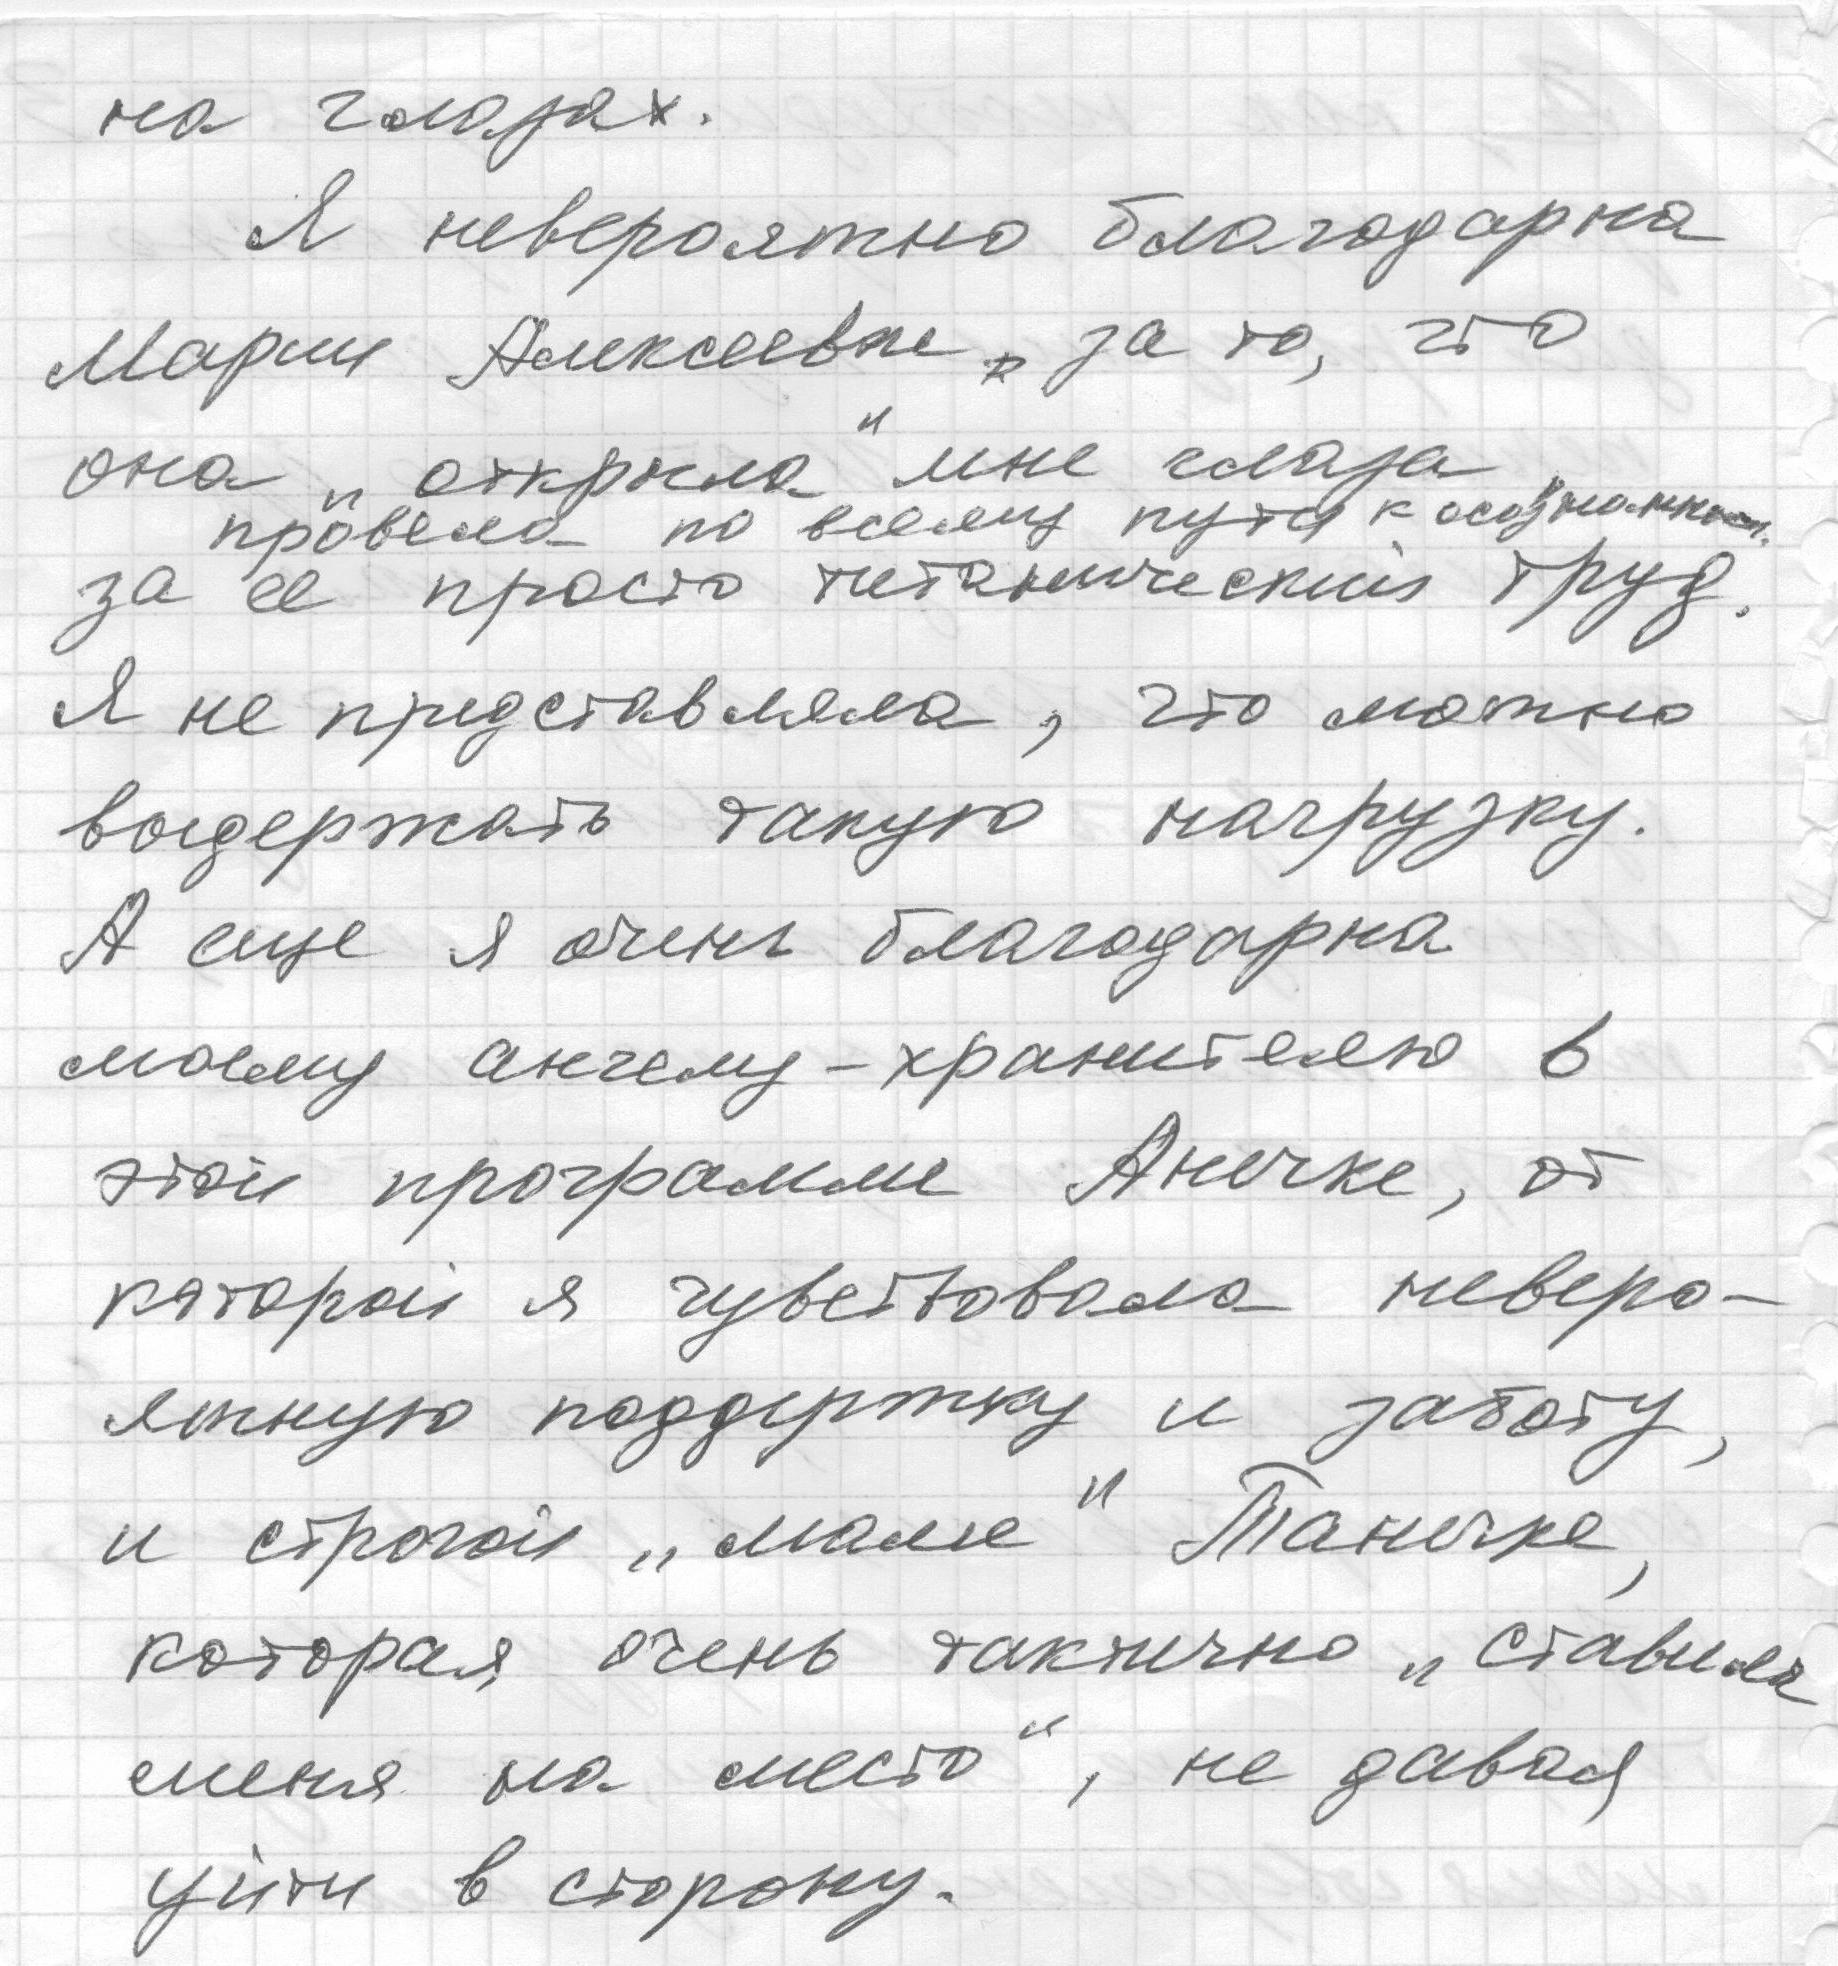 на глазах.
Я невероятно благодарна
Марии Алексеевне, за то, что
она „открыла" мне глаза,
провела по всему пути к осознанност.
за ее просто титанический труд.
Я не представляла, что можно
выдержать такую нагрузку.
А еще я очень благодарна
моему ангелу-хранителю в
этой программе Анечке, от
которой я чувствовала неверо-
ятную поддержку и заботу,
и строгой „маме" Танечке,
которая очень тактично „ставила
меня на место", не давая
уйти в сторону.